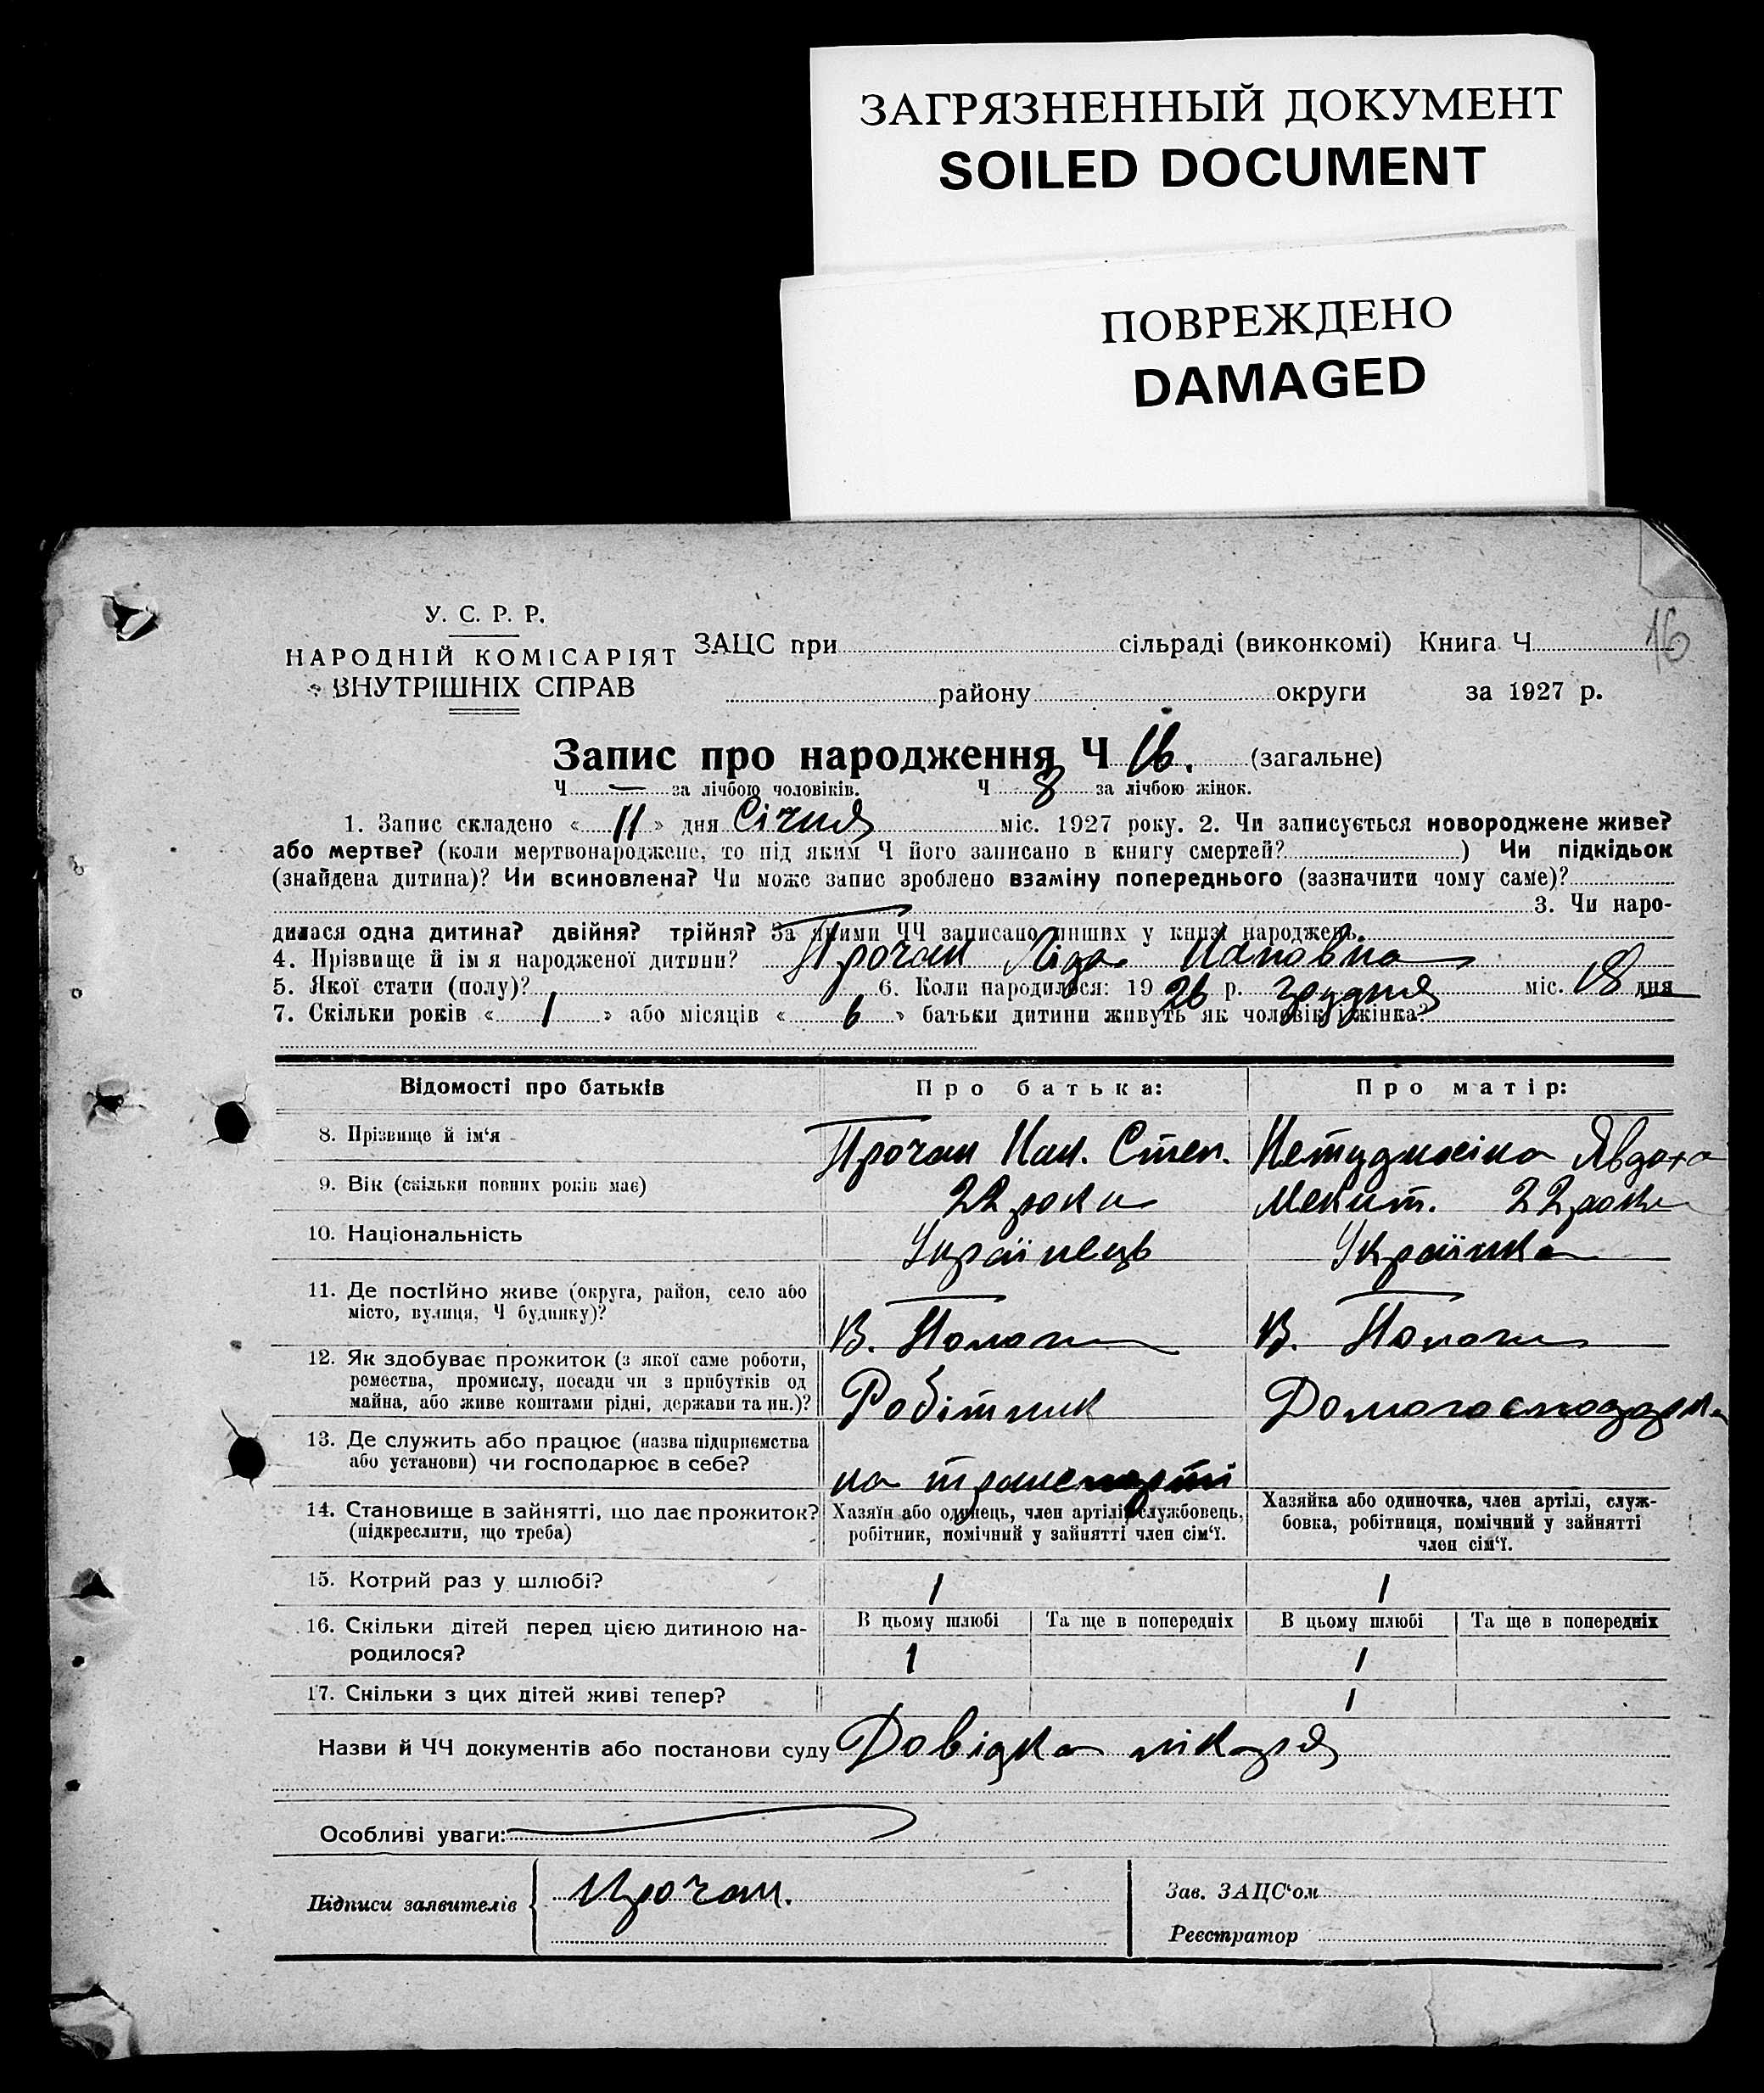 ЗАГРЯЗНЕННЫЙ ДОКУМЕНТ
SOILED DOCUMENT
ПОВРЕЖДЕНО
DAMAGED
16
У. С. Р. Р.
НАРОДНІЙ КОМІСАРІЯТ
ВНУТРІШНІХ СПРАВ
ЗАЦС при сільраді (виконкомі) Книга Ч
району округи за 1927 р.
Запис про народження Ч 16. (загальне)
Ч — за лічбою чоловіків. Ч 8 за лічбою жінок.
1. Запис складено « 11 » дня Січня міс. 1927 року. 2. Чи записується новороджене живе?
або мертве? (коли мертвонароджене, то під яким Ч його записано в книгу смертей? ) Чи підкідьок
(знайдена дитина)? Чи всиновлена? Чи може запис зроблено взаміну попереднього (зазначити чому саме)?
3. Чи наро-
дилася одна дитина? двійня? трійня? За якими ЧЧ записано инших у книзі народжень.
4. Прізвище й ім я народженої дитини? Прочан Ліда
5. Якої стати (полу)? 6. Коли народилося: 1926 р. грудня міс. 18 дня
7. Скільки років « 1 » або місяців « 6 » батьки дитини живуть як чоловік і жінка?
Відомості про батьків Про батька: Про матір:
8. Прізвище й ім'я Прочан Степ. Явдоха
9. Вік (скільки повних років має) 22 роки 22 роки
10. Національність Українець Українка
11. Де постійно живе (округа, район, село або
місто, вулиця, Ч будинку)?
В. В.
12. Як здобуває прожиток (з якої саме роботи,
ремества, промислу, посади чи з прибутків од
майна, або живе коштами рідні, держави та ин.)?
Робітник Домогосподарка
13. Де служить або працює (назва підприємства
або установи) чи господарює в себе?
на транспорті
14. Становище в зайнятті, що дає прожиток?
(підкреслити, що треба)
Хазяїн або одинець, член артілі, службовець,
робітник, помічний у зайнятті член сім'ї.
Хазяйка або одиночка, член артілі, служ-
бовка, робітниця, помічний у зайнятті
член сім'ї.
15. Котрий раз у шлюбі? 1 1
16. Скільки дітей перед цією дитиною на-
родилося?
В цьому шлюбі Та ще в попередніх В цьому шлюбі Та ще в попередніх
1 1
17. Скільки з цих дітей живі тепер? 1
Назви й ЧЧ документів або постанови суду Довідка лікаря
Особливі уваги:
Підписи заявителів Прочан.
Зав. ЗАЦС'ом
Реєстратор